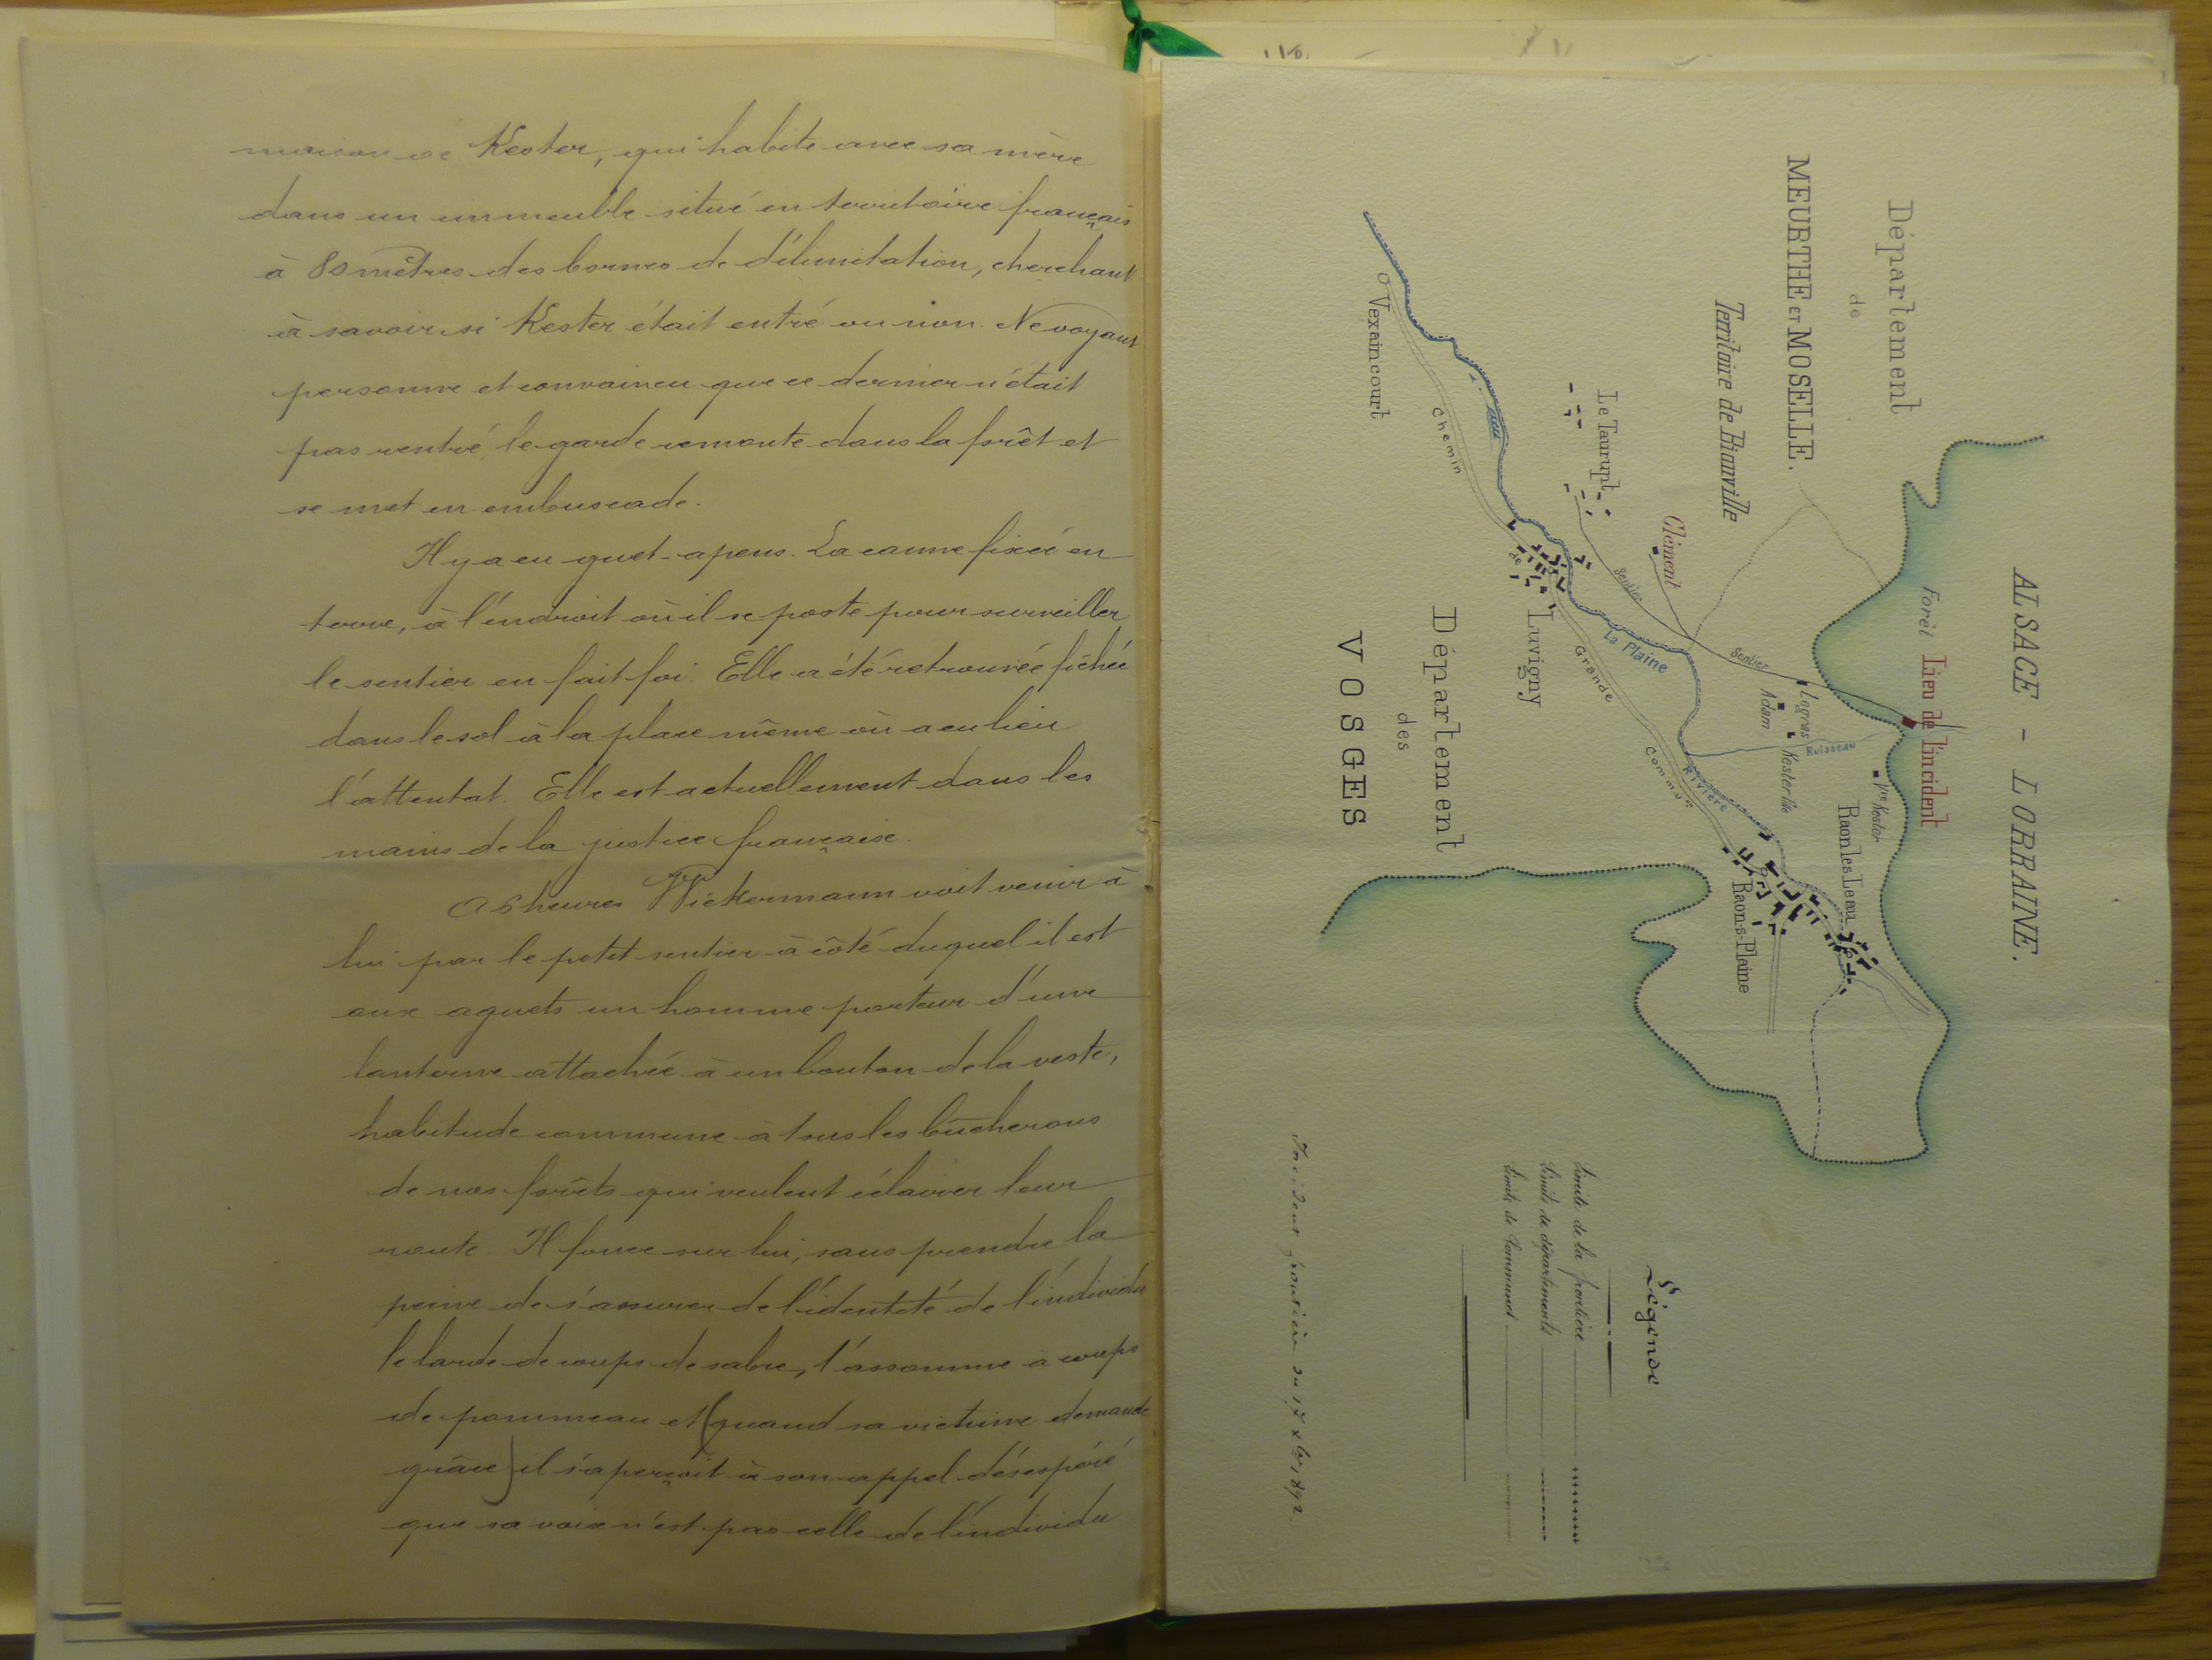 maison de Kester, qui habite avec sa mère
dans un immeuble situé en territoire français
à 80 mètres des bornes de délimitation, cherchant
à savoir si Kester était entré ou non. Ne voyant
personne et convaincu que ce dernier n'était
pas rentré, le garde remonte dans la forêt et
se met en embuscade.
Il y a eu guet-apens. La canne fixée en
terre, à l'endroit où il se poste pour surveiller
le sentier en fait foi. Elle a été retrouvée fichée
dans le sol à la place même où a eu lieu
l'attentat. Elle est actuellement dans les
mains de la justice française.
A 6 heures Wickermann voit venir à
lui par le petit sentier à côté duquel il est
aux aguets un homme porteur d'une
lanterne attachée à un bouton de la veste,
habitude commune à tous les bûcherons
de nos forêts qui veulent éclairer leur
route. Il fonce sur lui, sans prendre la
peine de s'assurer de l'identité de l'individu
le larde de coups de sabre, l'assomme à coups
de pommeau et (quand sa victime demande
grâce) il s'aperçoit à son appel désespéré
que sa voix n'est pas celle de l'individu
ALSACE - LORRAINE.
Département
de
MEURTHE ET MOSELLE.
Territoire de Bionville
Forêt
Lieu de l'incident
Le Taurupt
Clément
Sentier
Sentier
Lagras
Adam
Kester
Ruisseau
Vve Kester
Raon les Leau
Raon-s-Plaine
La Plaine
Rivière
Vexaincourt
Chemin
de
Grande
Commun
Luvigny
Département
des
VOSGES
Légende
Limite de la frontière
Limite de départements
Limite de Communes
Incident frontière du 17 Xbre 1892